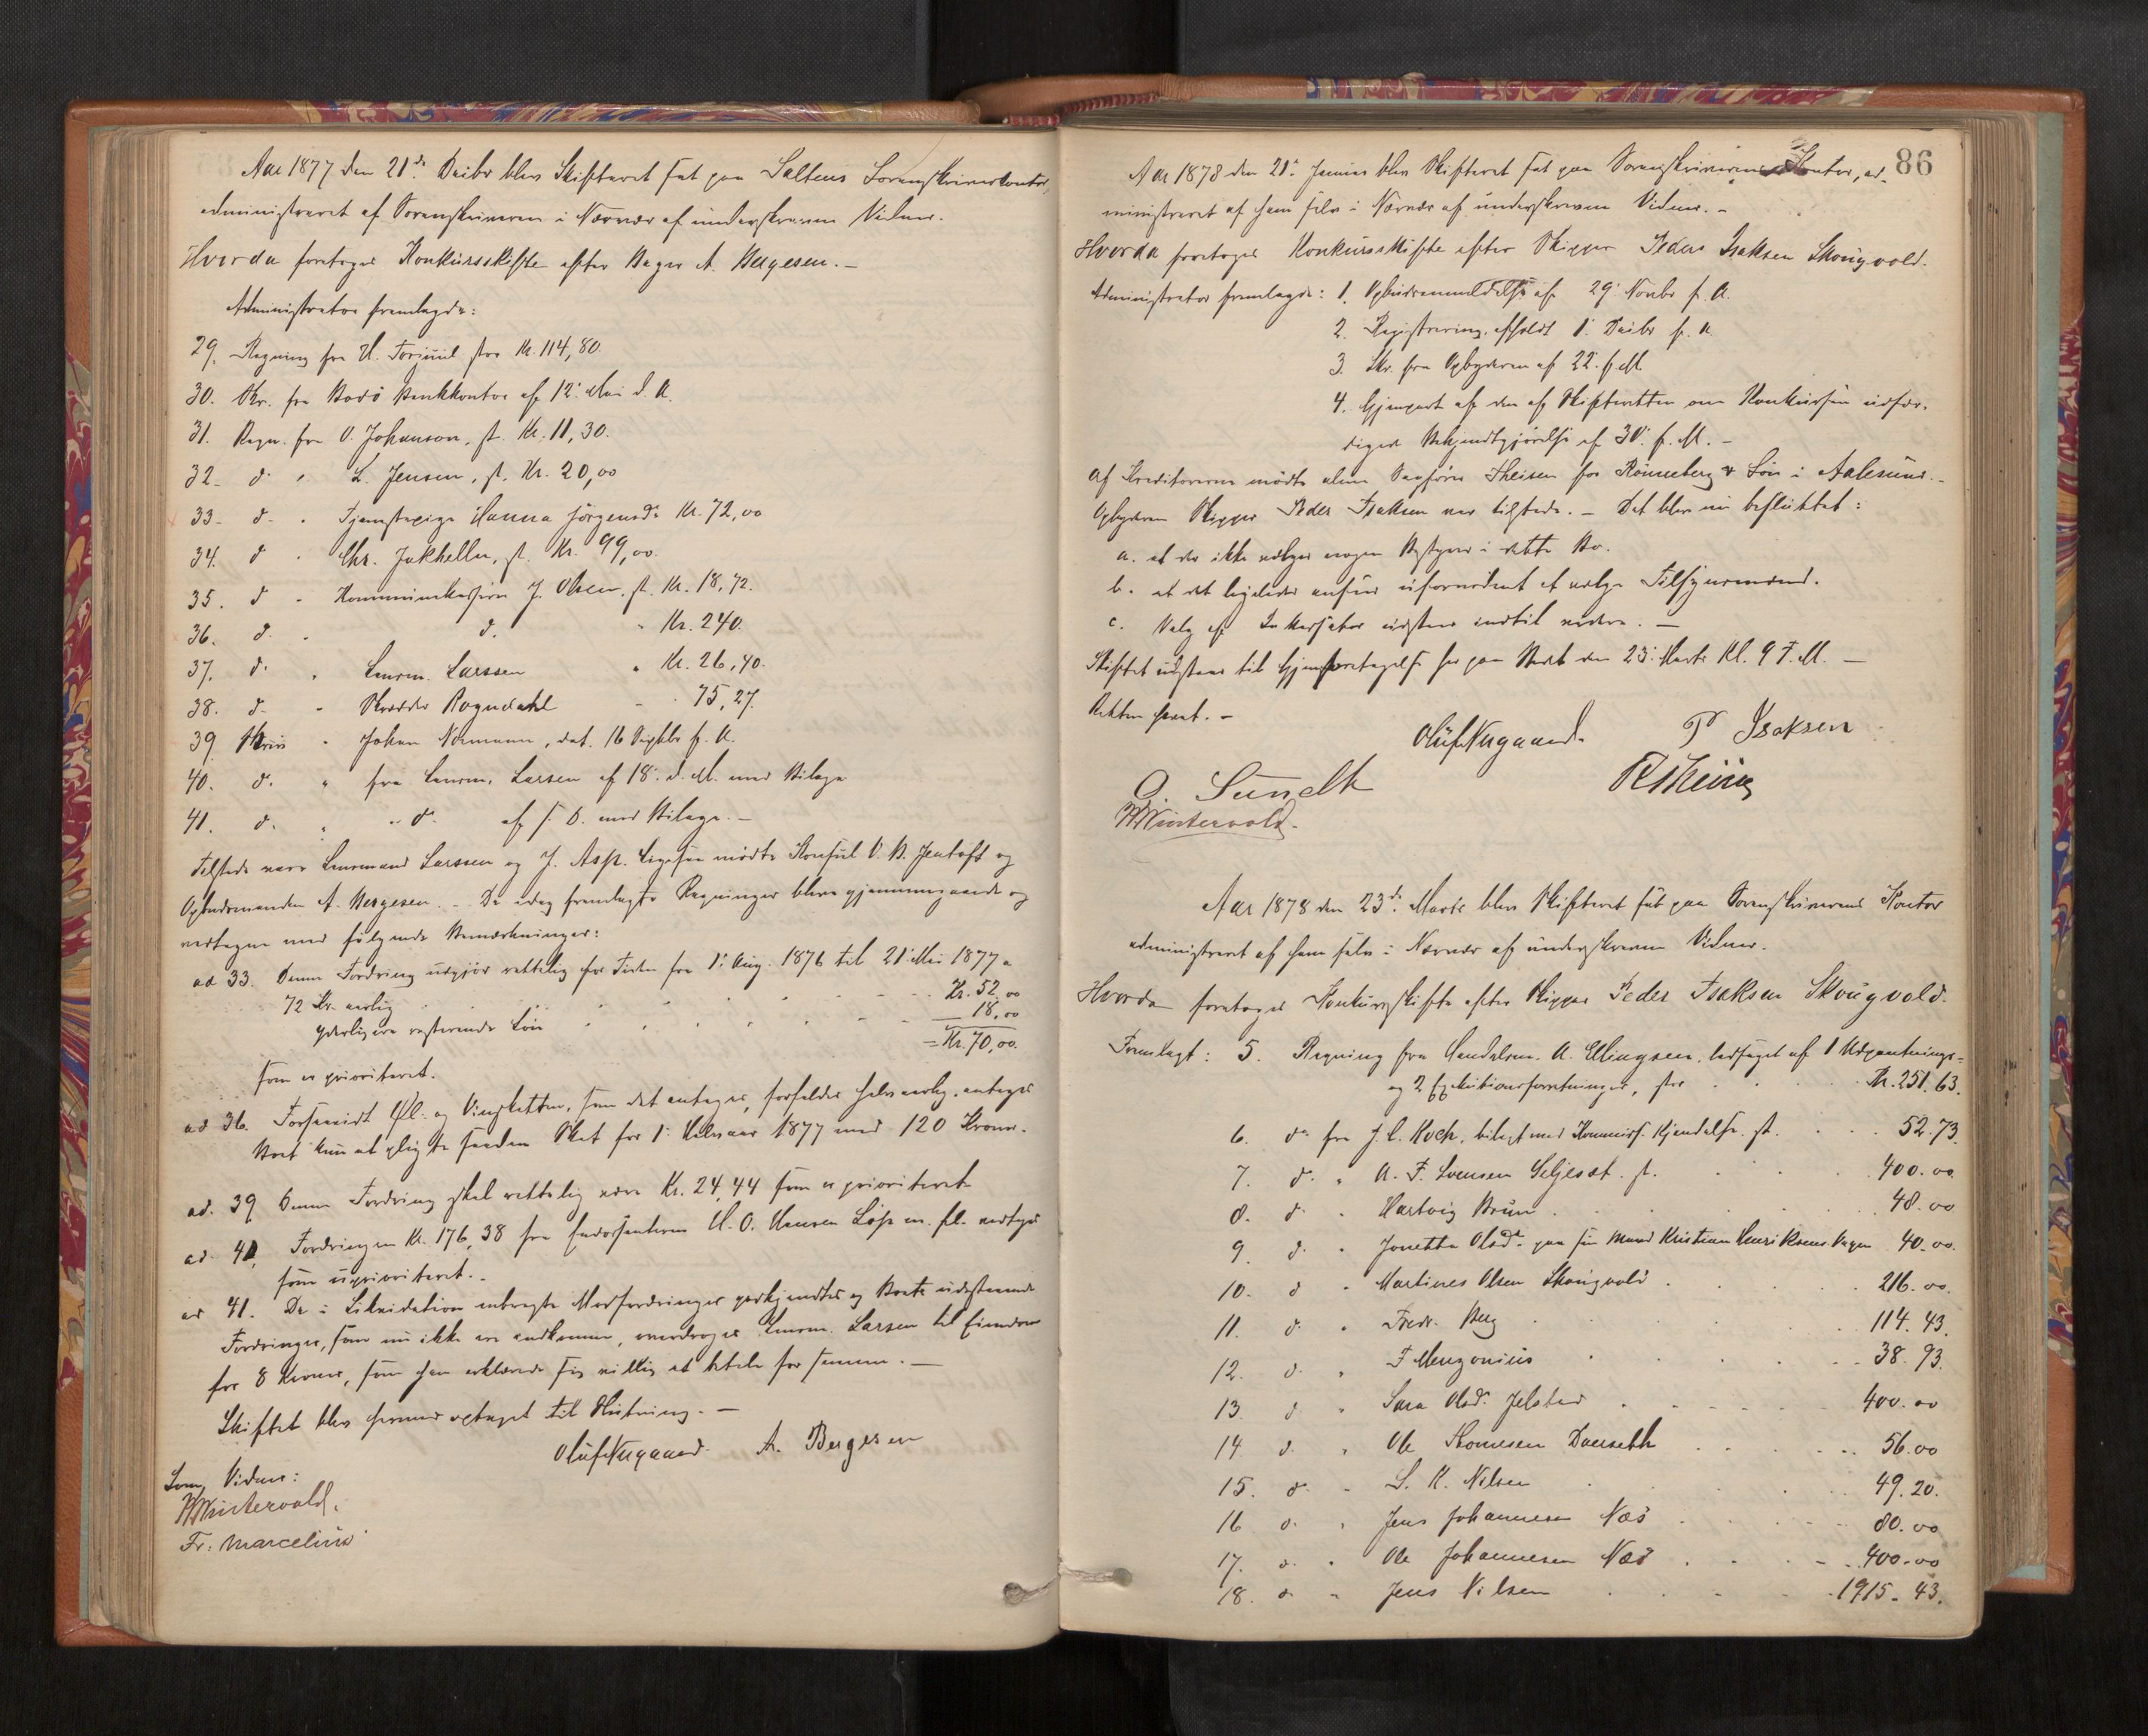 Aar 1877 den 21de Decbr blev Skifteret sat paa Saltens Sorenskriverkontor,
administreret af Sorenskriveren i Nærvær af underskrevne Vidner.
Hvorda foretoges Konkursskifte efter Bager A. Bergesen. –
Administrator fremlagde:
29. Regning fra H. Forjuul stor Kr. 114,80.
30. Skr. fra Bodö Bankkontor af 12' Mai d. A.
31. Regn. fra O. Johanson, st. Kr. 11,30.
32. do " L. Jensen, st. Kr. 20,00
33. do " Tjenestepige Hanna Jörgensdr Kr. 72,00
34. do " Chr. Jakhelln, st. Kr. 99,00.
35. do " J. Olsen st. Kr. 18,72.
36. do " do " Kr. 240.
37. do " Lensm. Larssen " Kr. 26,40.
38. do " Skrædder Rogndahl " 75,27.
39. Skriv " Johan Normann, dat. 16 f. A.
40. do " fra Lensm. Larsen af 18' d. M. med Bilage
41. do " " do af s. D. med Bilage. –
Tilstede vare Lensmand Larssen og J. Asp. Ligesaa mödte Konsul O. B. Jentoft og
Opbudsmanden A. Bergesen. – De idag fremlagte Regninger bleve gjennemgaaede og
vedtagne med fölgende Bemærkninger:
ad 33. Denne Fordring udgjör rettelig for Tiden fra 1' Aug. 1876 til 21' Mai 1877 a
72 Kr. aarlig Kr. 52,00
yderligere resterende Lön 18,00
= Kr. 70,00.
som er prioriteret.
ad 36. Forsaavidt Öl- og Vinskatten, som det antages, forfalder halvaarlig, antages
Boet kun at pligte saadan Skat for 1' Halvaar 1877 med 120 Kroner.
ad. 39 Denne Fordring skal rettelig være Kr. 24,44 som er prioriteret
ad. 41, Fordringen Kr. 176,38 fra H. O. Hansen m. fl. vedtages
som uprioriteret. –
ad 41. De i Likvidation anbragte Modfordringer godkjendtes og Boets udestaaende
Fordringer, som nu ikke ere indkomne, overdroges Lensm. Larsen til Eiendom
for 8 Kroner, som han erklærede sig villig at betale for samme. –
Skiftet blev herved optaget til Slutning. –
Oluf Nygaard. A. Bergesen
Som Vidner:
Fr. Marcelius
86
Aar 1878 den 21' Januar blev Skifteret sat paa Sorenskriverens Kontor, ad-
ministreret af ham selv i Nærvær af underskrevne Vidner. –
Hvorda foretoges Konkursskifte efter Skipper Peder Isaksen Skougvold.
Administrator fremlagde: 1. Opbudsanmeldelse af 29' Novbr f. A.
2. Registrering, afholdt 1' Decbr f. A
3. Skr. fra Opbyderen af 22' f. M.
4. Gjenpart af den af Skifteretten om Konkursen udfær-
digede Bekjendtgjörelse af 30' f. M. –
Af Kreditorerne mödte alene Sagförer Theisen for Rönneberg & Sön i Aalesund. –
Opbyderen Skipper Peder Isaksen var tilstede. – Det blev nu besluttet:
a. at der ikke vælges nogen Bestyrer i dette Bo.
b. at det ligeledes ansees ufornödent at vælge Tilsynsmænd.
c. Valg af Inkassator udstaar indtil videre. –
Skiftet udstaar til Gjenforetagelse her paa Stedet den 23' Marts Kl. 9 F. M. –
Retten hævet. –
Oluf Nygaard. P Isaksen
O. Sundt R Theisen
Aar 1878 den 23de Marts blev Skifteret sat paa Sorenskriverens Kontor
administreret af ham selv i Nærvær af underskrevne Vidner.
Hvorda foretoges Konkursskifte efter Skipper Peder Isaksen Skougvold.
Fremlagt: 5. Regning fra Handelsm. A. Ellingsen, ledsaget af 1 Udpantnings-
og 2 Exekutionsforretninger, stor Kr. 251.63.
6. do fra J. C. Koch, bilagt med Kommiss. Kjendelse st. 52.73.
7. do " A. F. Svensen Seljesæt. st. 400.00.
8. do " Hartvig Bruun 48.00
9. do " Jonetta Olsdr paa sin Mand Kristian Henriksens Vegne 40.00.
10. do " Martines Olsen Skougvold 216.00.
11. do " Fredr. Berg 114.43.
12. do " F Menzonius 38.93.
13. do " Sara Olsdr. Jelstad 400.00
14. do " Ole 56.00
15. do " S. K. Nilsen 49.20.
16. do " Jens Johannesen Næs 80.00
17. do " Ole Johannesen Næs 400.00
18. do " Jens Nilsen 1915.43.